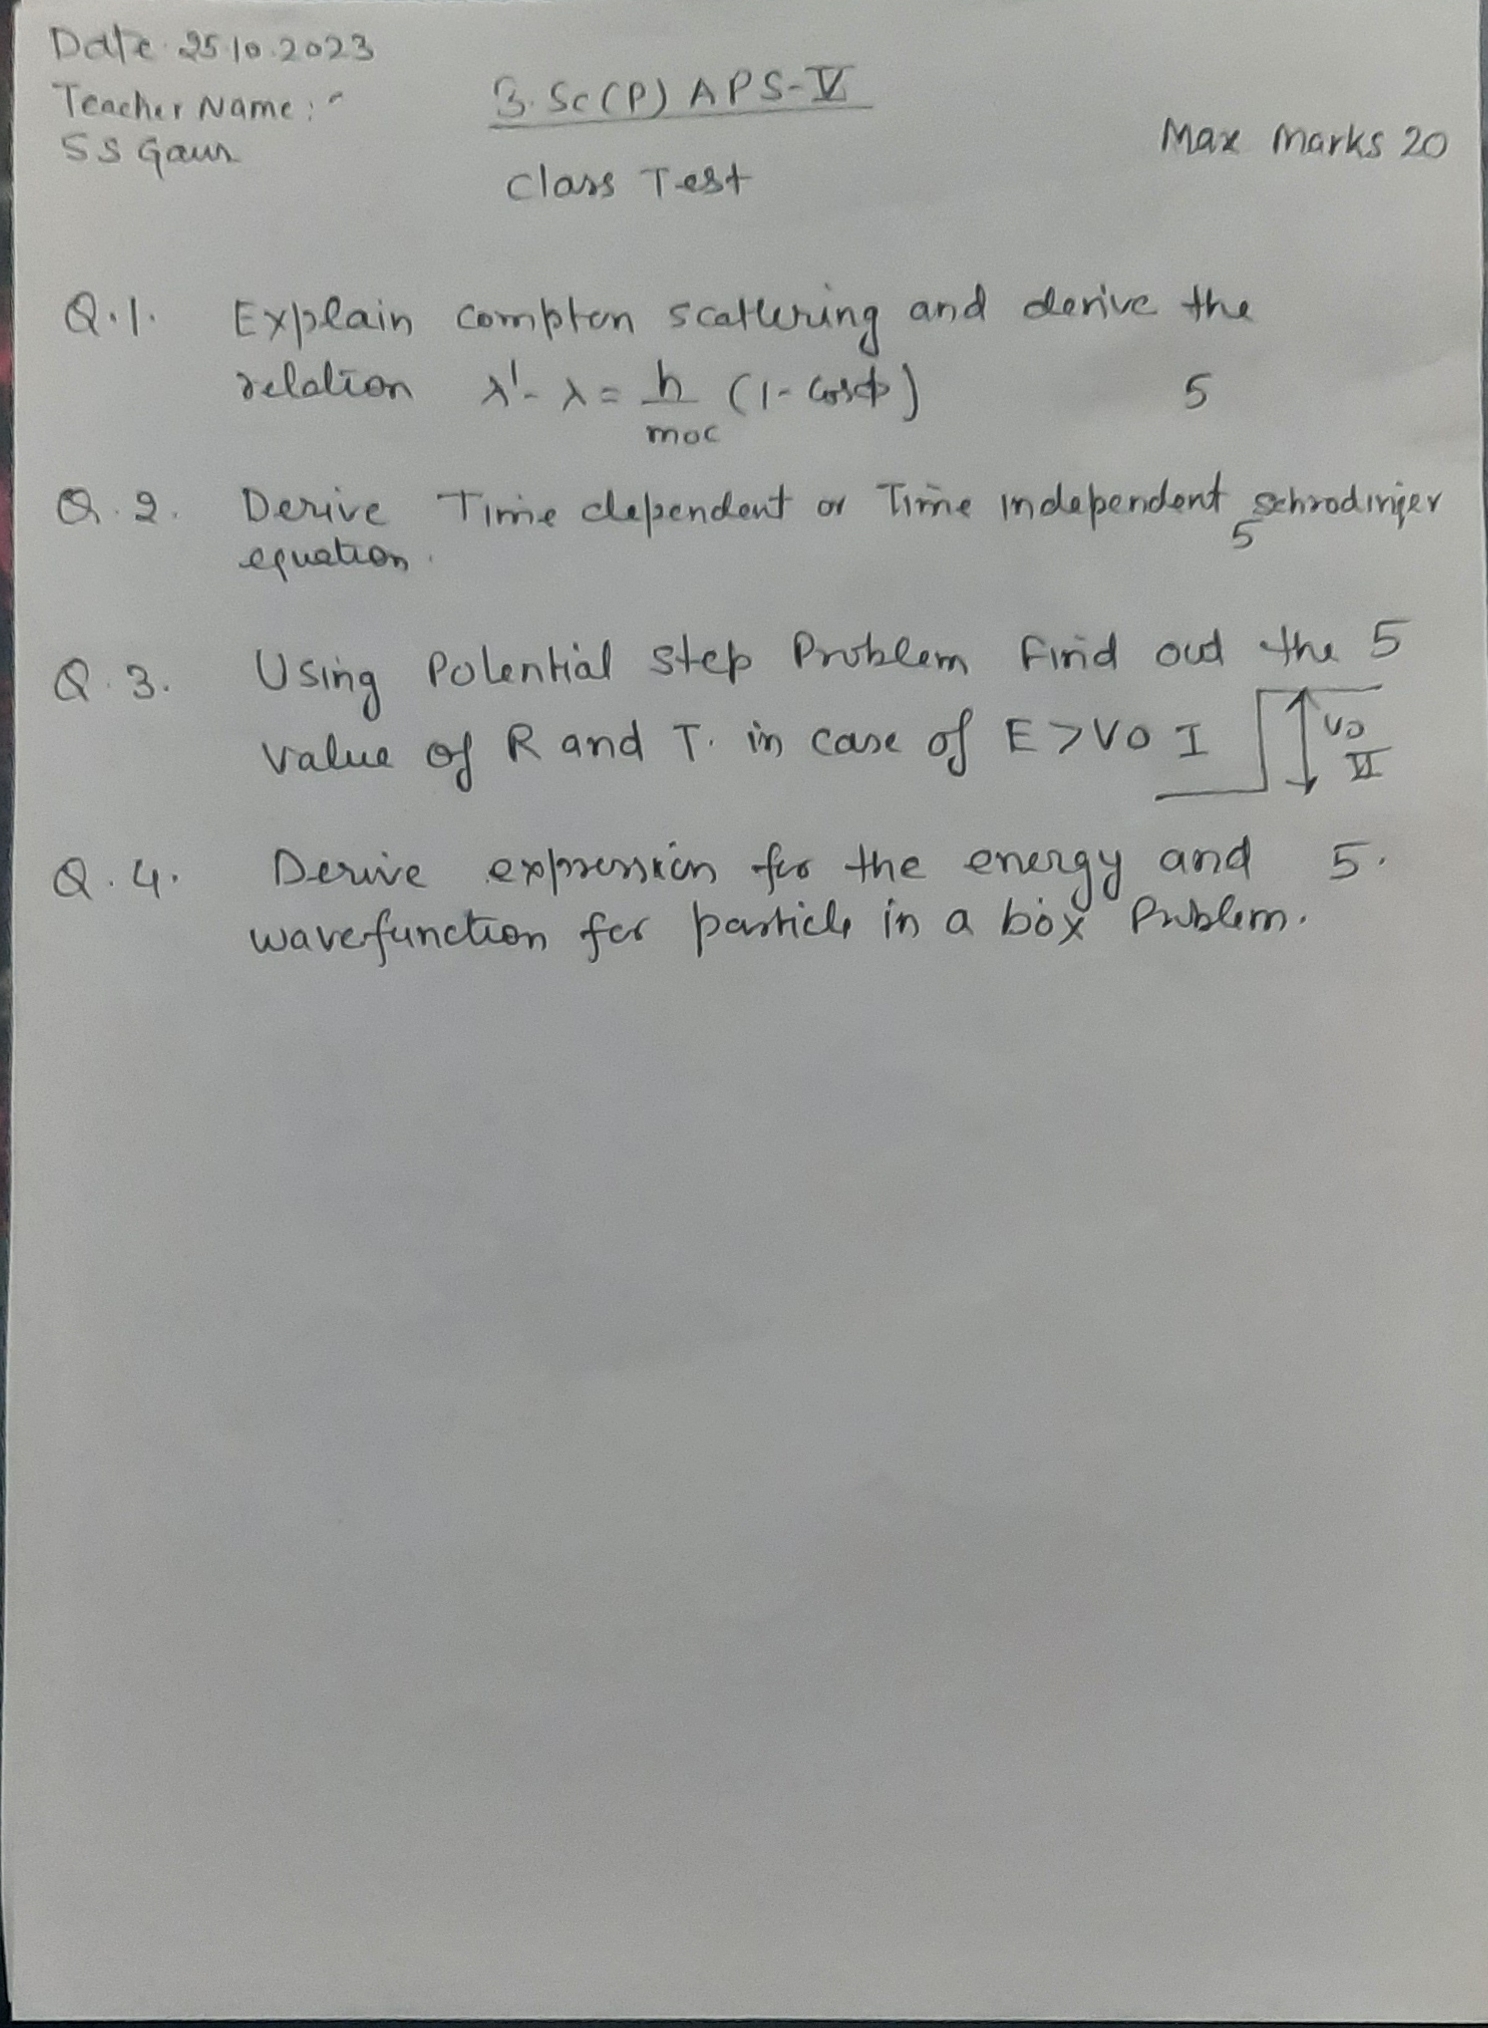 Date 25.10.2023
Teacher Name :-
S S Gaur
B.Sc(P) APS-V
Class Test
Max Marks 20
Q.1. Explain compton scattering and derive the
relation λ'-λ = h/moc (1-Cosϕ) 5
Q.2. Derive Time dependent or Time independent schrodinjer
equation. 5
Q.3. Using Potential step Problem Find out the 5
value of R and T. in case of E>V0 I V0 II
Q.4. Derive expression for the energy and 5.
wavefunction for particle in a box Problem.